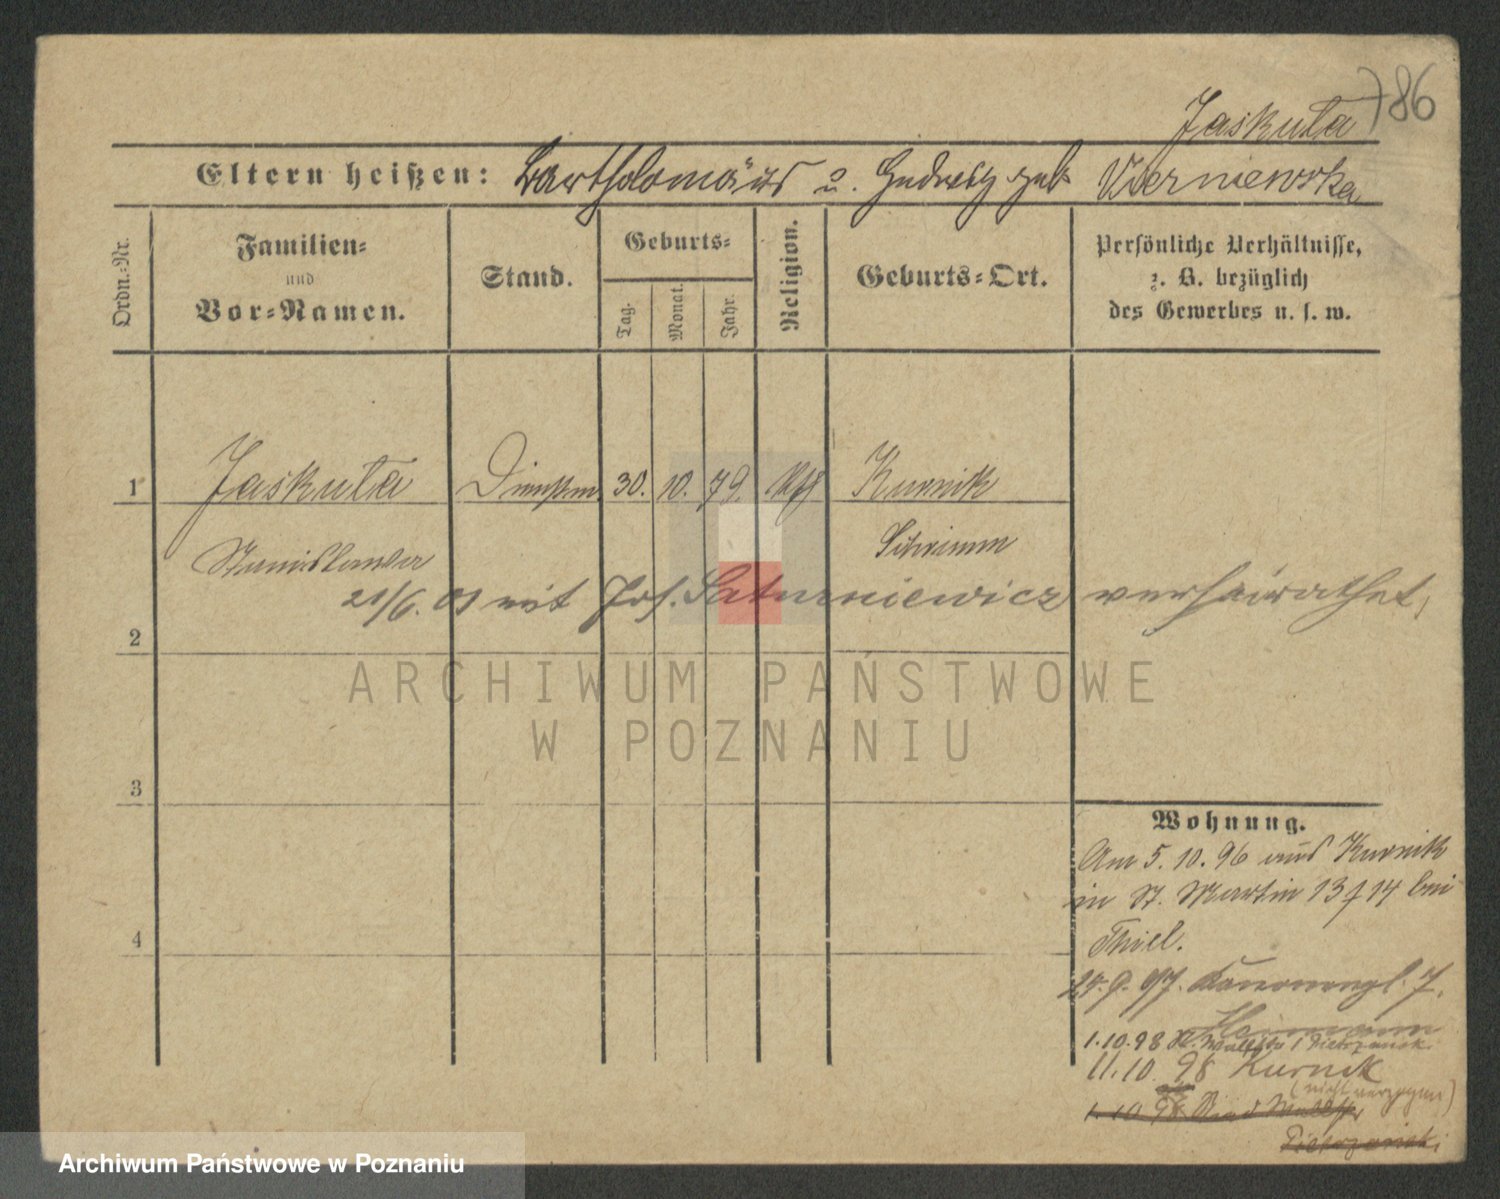 786
Jaskuła
Eltern heißen: Bartholomäus u. Hedwig geb Wierniewska
Ordn.-Nr.
Familien-
und
Vor-Namen.
Stand.
Geburts-
Tag.
Monat.
Jahr.
Religion.
Geburts-Ort.
Persönliche Verhältnisse,
z. B. bezüglich
des Gewerbes u. s. w.
1 Jaskuła Dienstm 30. 10. 79. Kurnik
Stanislawa Schrimm
21/6. 03 mit Jos. Saturniewicz verheirathet,
2
3
4
Wohnung.
Am 5. 10. 96 aus Kurnik
in St. Martin 13/14 bei
Thiel.
24. 9. 97. 7.
Heimann
1.10.98 Pietrzanek
11. 10. 98 Kurnik
(nicht verzogen)
1. 10. 98
Pietrzanek
ARCHIWUM PAŃSTWOWE
W POZNANIU
Archiwum Państwowe w Poznaniu